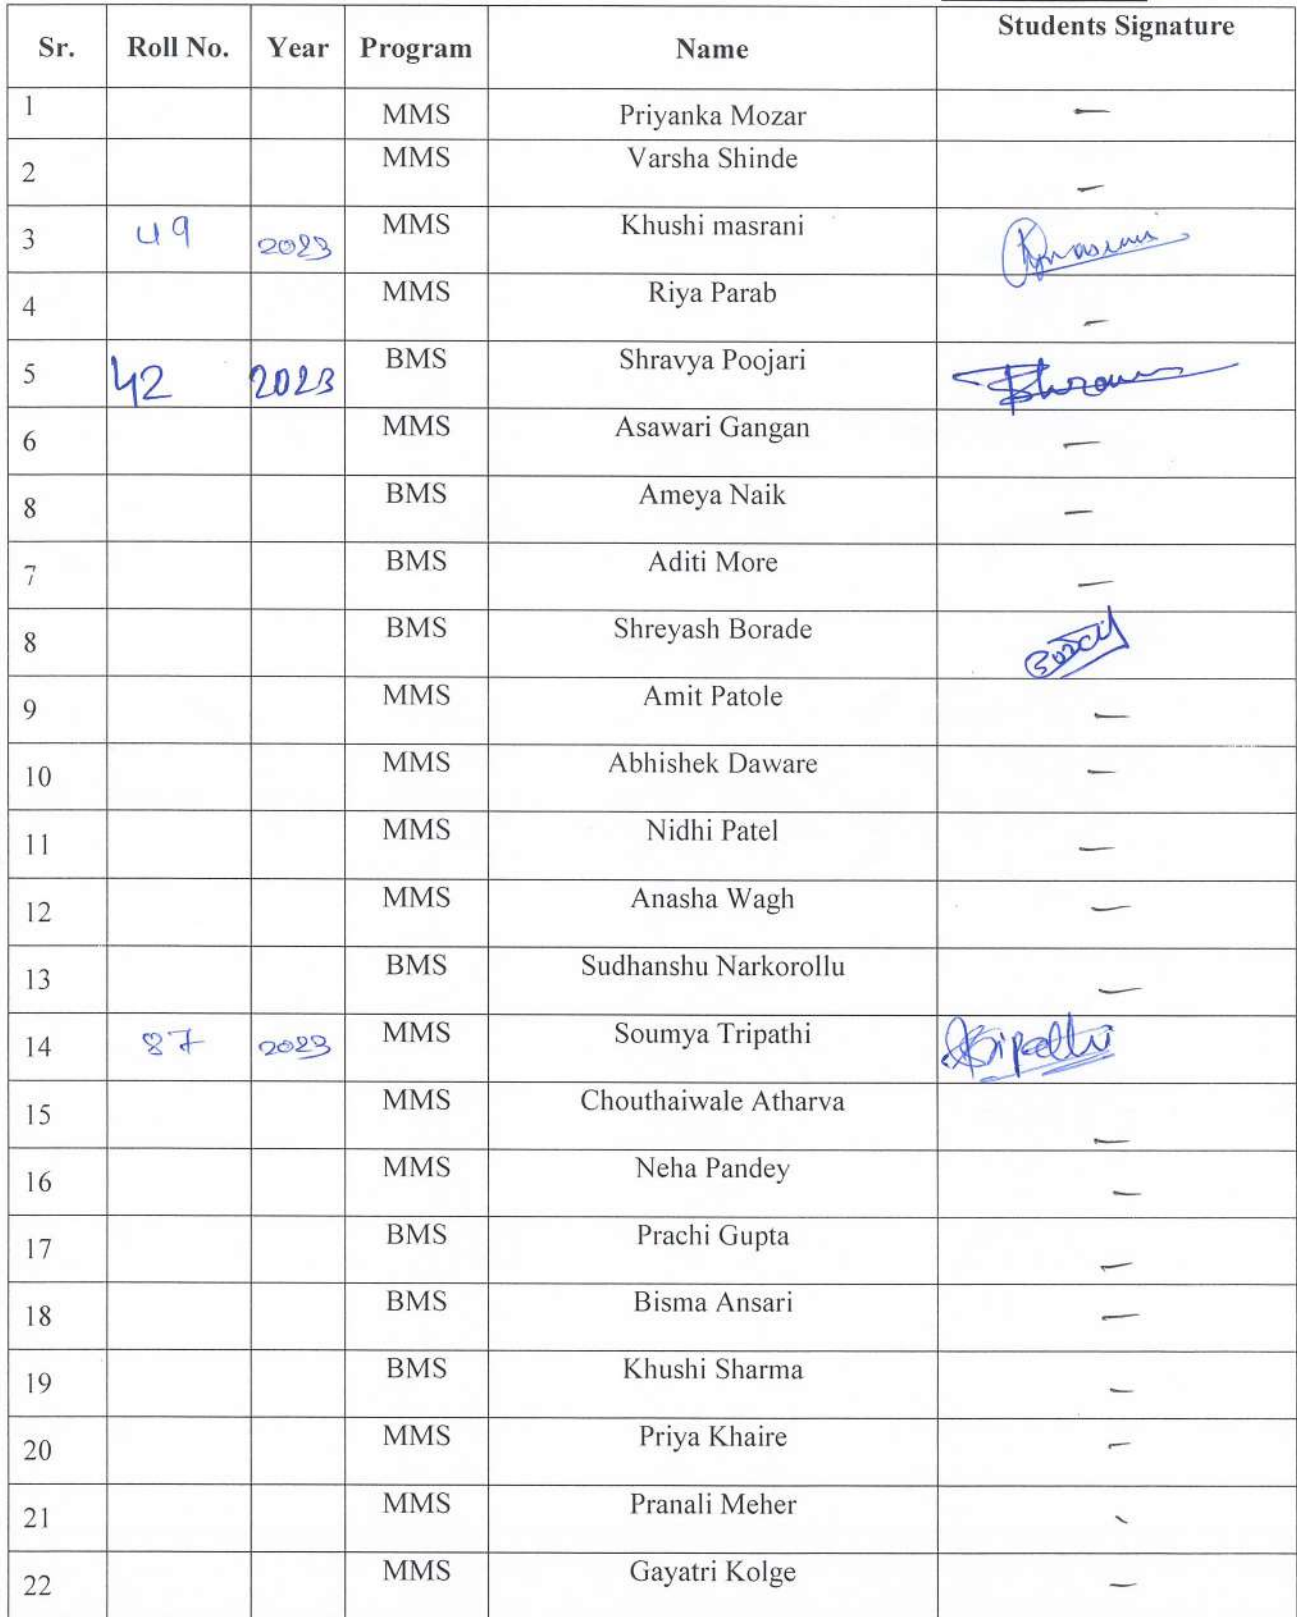 Sr. Roll No. Year Program Name Students Signature
1 MMS Priyanka Mozar —
2 MMS Varsha Shinde —
3 49 2023 MMS Khushi masrani
4 MMS Riya Parab —
5 42 2023 BMS Shravya Poojari
6 MMS Asawari Gangan —
8 BMS Ameya Naik —
7 BMS Aditi More —
8 BMS Shreyash Borade
9 MMS Amit Patole —
10 MMS Abhishek Daware —
11 MMS Nidhi Patel —
12 MMS Anasha Wagh —
13 BMS Sudhanshu Narkorollu —
14 87 2023 MMS Soumya Tripathi
15 MMS Chouthaiwale Atharva —
16 MMS Neha Pandey —
17 BMS Prachi Gupta —
18 BMS Bisma Ansari —
19 BMS Khushi Sharma —
20 MMS Priya Khaire —
21 MMS Pranali Meher -
22 MMS Gayatri Kolge —